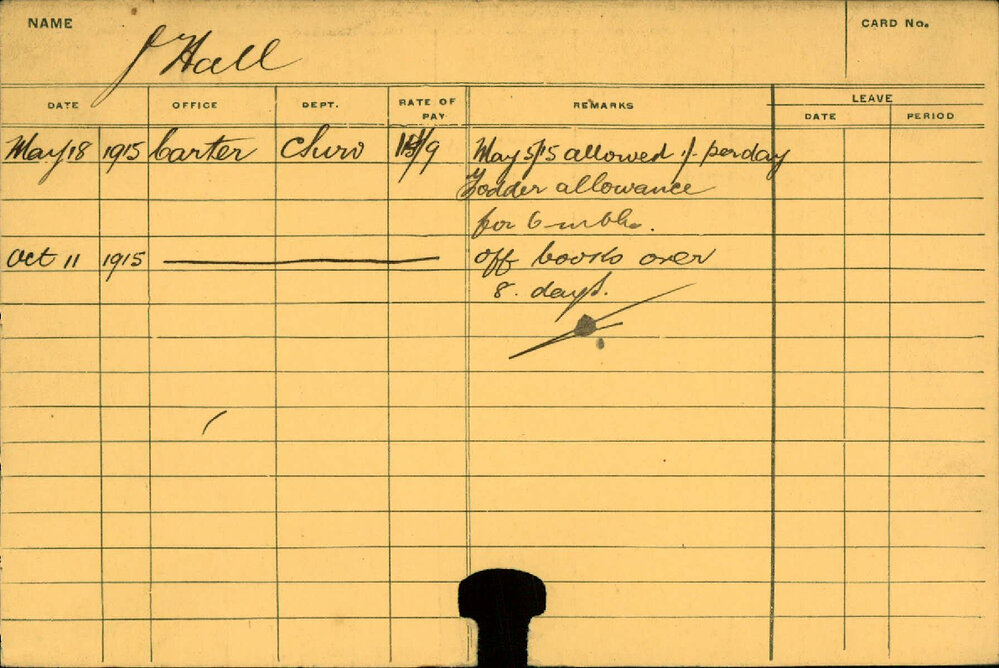 NAME
J Hall
CARD No.
DATE OFFICE DEPT. RATE OF PAY REMARKS LEAVE
DATE PERIOD
May 18 1915 Carter /9 May 5/15 allowed 1/- per day
Fodder allowance
for 6 mths.
Oct 11 1915 off books over
8. days.